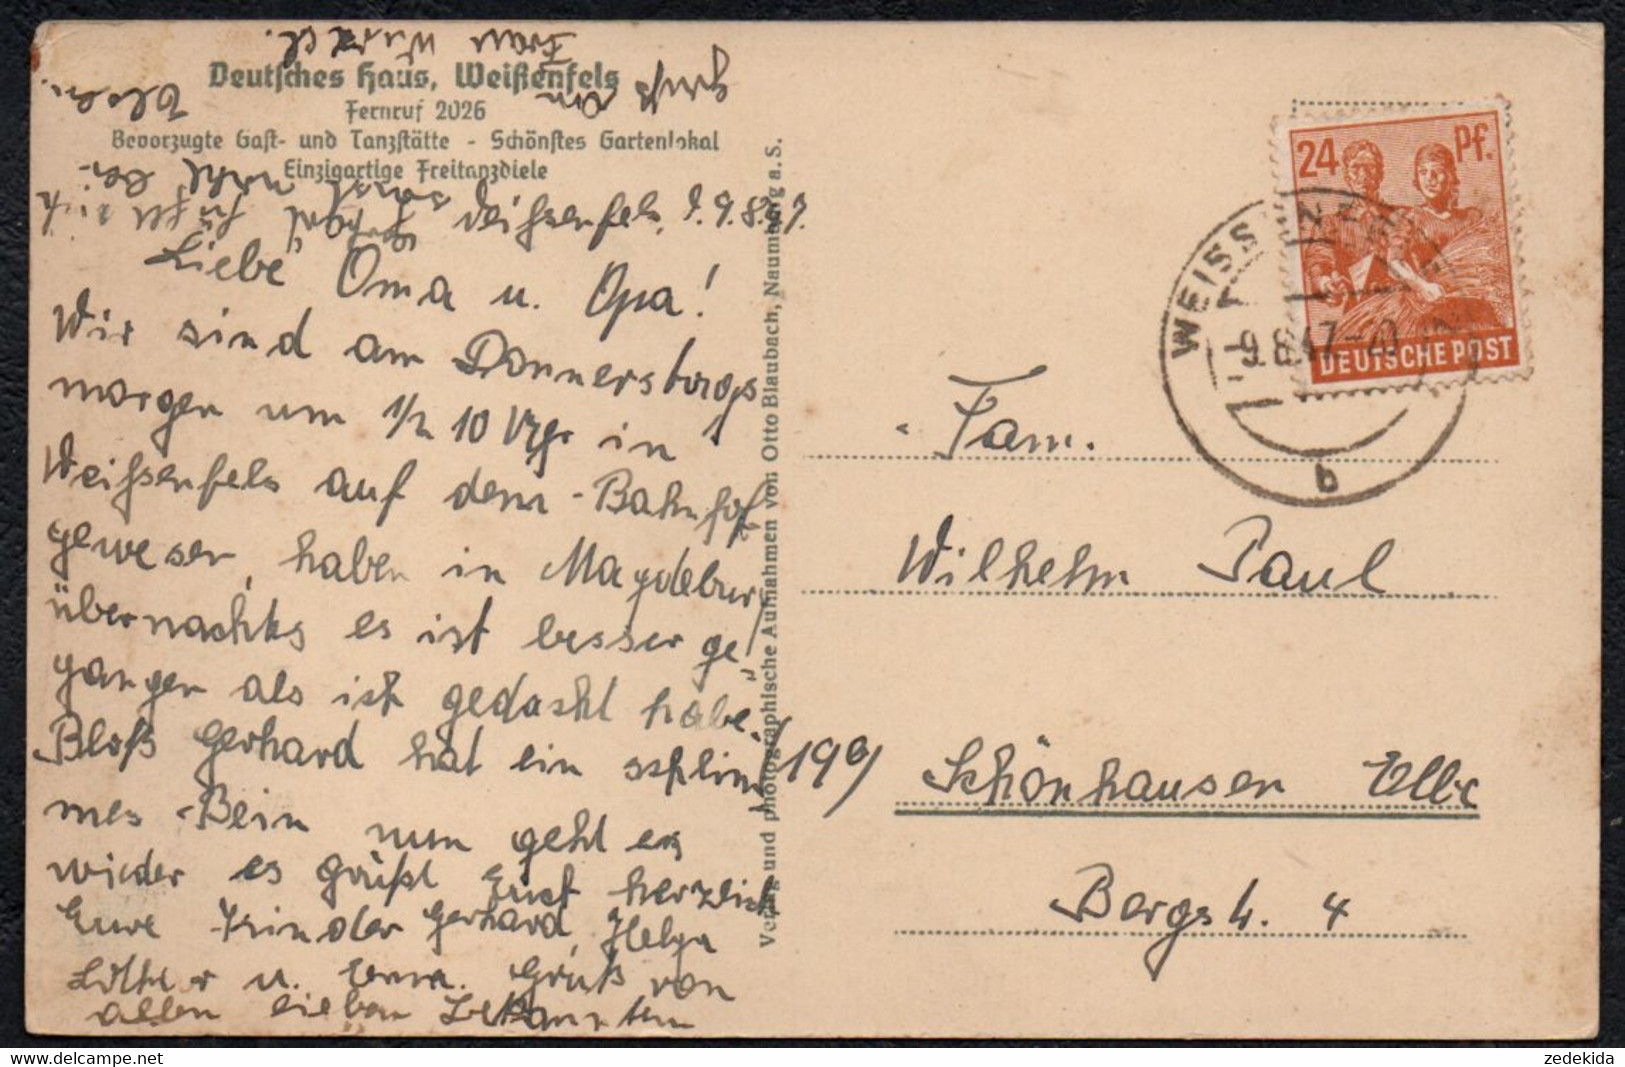 Deutsches Haus, Weißenfels
Fernruf 2026
Bevorzugte Gast- und Tanzstätte - Schönstes Gartenlokal
Einzigartige Freitanzdiele
Weißenfels, d. 9.8.47.
Liebe Oma u. Opa!
Wir sind am Donnerstags
morgen um 1/2 10 Uhr in
Weißenfels auf dem Bahnhof
gewesen, haben in Magdeburg
übernachts es ist besser ge-
gangen als ich gedacht habe.
Bloß Gerhard hat ein schlim
mes Bein nun geht es
wieder es grüßt Euch herzlich
Eure Kinder Gerhard, Helga
Lothar u. Erna. Gruß von
allen lieben Bekannten
gruß an
Frau Wurzel.
Oben.
sonst nicht bei
gefällt sich
Verlag und photographische Aufnahmen von Otto Blaubach, Naumburg a. S.
24 Pf.
DEUTSCHE POST
WEISSENFELS
-9.8.47-20
b
Fam.
Wilhelm Paul
(19a)
Schönhausen Elbe
Bergstr. 4
zedekida
https://www.delcampe.net